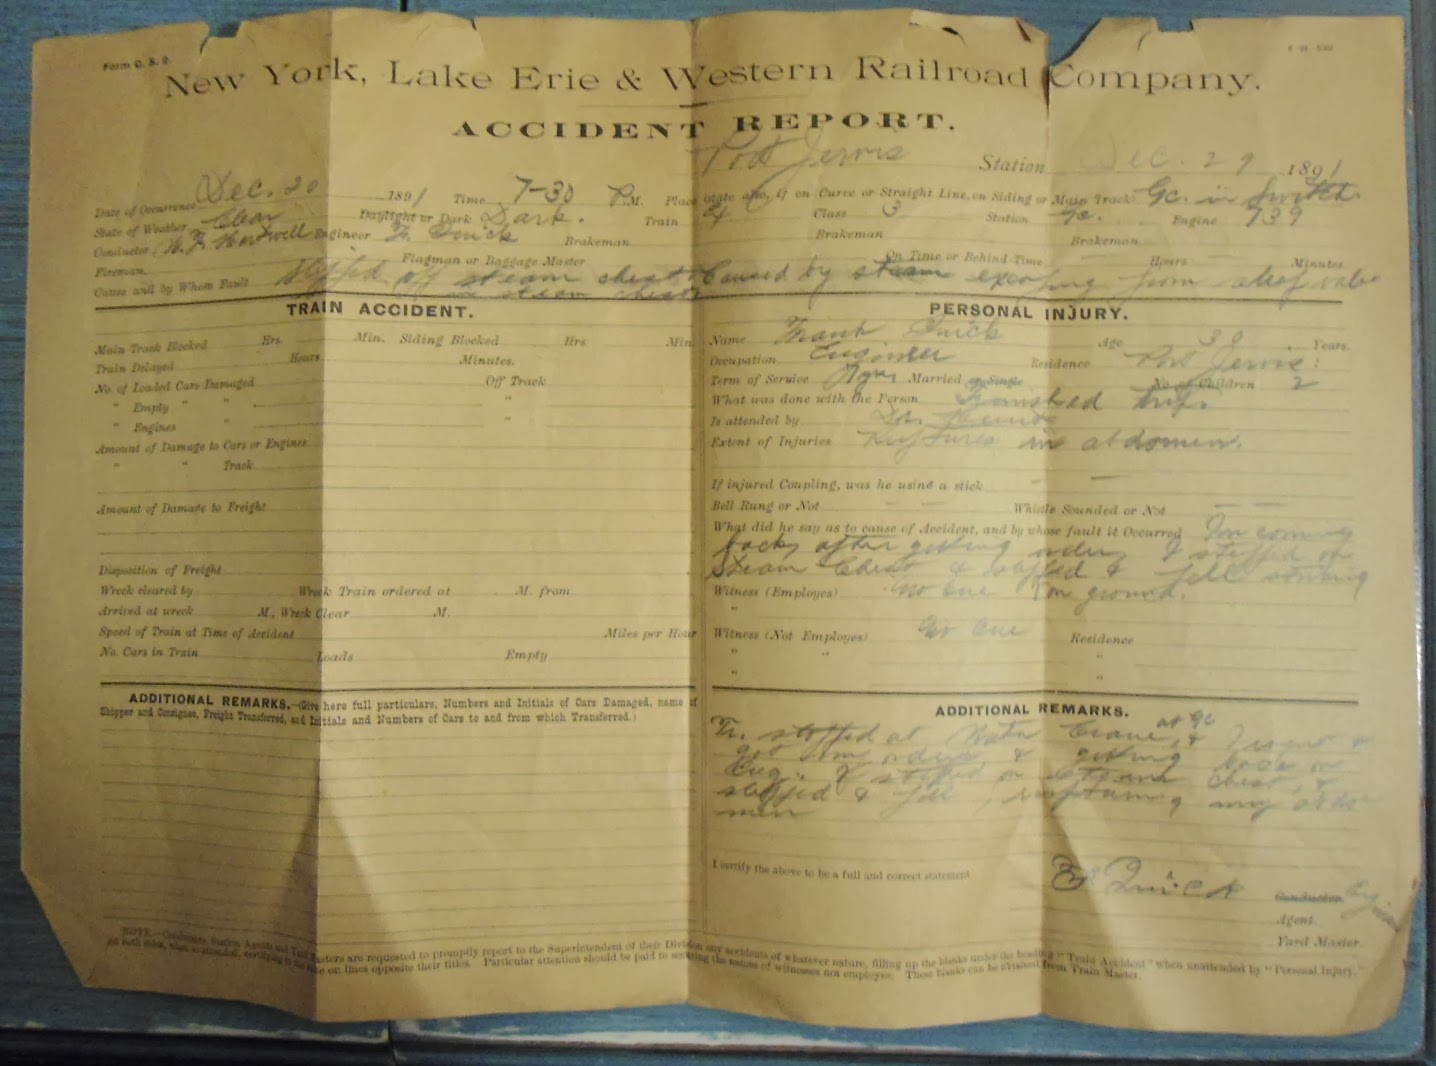 Form C. S. 2.
New York, Lake Erie & Western Railroad Company.
ACCIDENT REPORT.
Port Jervis Station Dec. 29 1891
Date of Occurrence Dec. 20 1891 Time 7-30 P.M. Place (state also, if on Curve or Straight Line, on Siding or Main Track) Gc. in Switch
State of Weather Clear Daylight or Dark Dark. Train Class 3 Station Gc. Engine 739
Conductor Engineer F. Quick Brakeman Brakeman Brakeman
Fireman Flagman or Baggage Master On Time or Behind Time Hours Minutes
Cause and by Whom Fault Slipped off steam chest Caused by steam escaping from relief valve
in steam chest
TRAIN ACCIDENT.
Main Track Blocked Hrs. Min. Siding Blocked Hrs. Min.
Train Delayed Hours Minutes.
No. of Loaded Cars Damaged Off Track
" Empty " " "
" Engines " "
Amount of Damage to Cars or Engines
" " Track
Amount of Damage to Freight
Disposition of Freight
Wreck cleared by Wreck Train ordered at M. from
Arrived at wreck M., Wreck Clear M.
Speed of Train at Time of Accident Miles per Hour
No. Cars in Train Loads Empty
ADDITIONAL REMARKS.—(Give here full particulars, Numbers and Initials of Cars Damaged, name of
Shipper and Consignee, Freight Transferred, and Initials and Numbers of Cars to and from which Transferred.)
PERSONAL INJURY.
Name Frank Quick Age Years.
Occupation Engineer Residence Port Jervis
Term of Service Married or Single No. of Children 2
What was done with the Person Finished trip.
Is attended by Dr.
Extent of Injuries Ruptured in abdomen.
If injured Coupling, was he using a stick —
Bell Rung or Not — — Whistle Sounded or Not — —
What did he say as to cause of Accident, and by whose fault it Occurred In coming
back after getting orders I stepped on
steam chest & slipped & fell striking
Witness (Employes) No one on ground.
"
Witness (Not Employes) No one Residence
" " "
" "
ADDITIONAL REMARKS.
Tr. stopped at Water Crane at Gc & I went &
got my orders & getting back on
Eng. I stepped on steam chest, &
slipped & fell, rupturing my abdo
men
I certify the above to be a full and correct statement
F Quick Conductor Engineer
Agent.
Yard Master.
NOTE.—Conductors, Station Agents and Yard Masters are requested to promptly report to the Superintendent of their Division any accidents of whatever nature, filling up the blanks under the heading "Train Accident" when unattended by "Personal Injury,"
on lines opposite their titles. Particular attention should be paid to securing the names of witnesses not employes. These blanks can be obtained from Train Master.